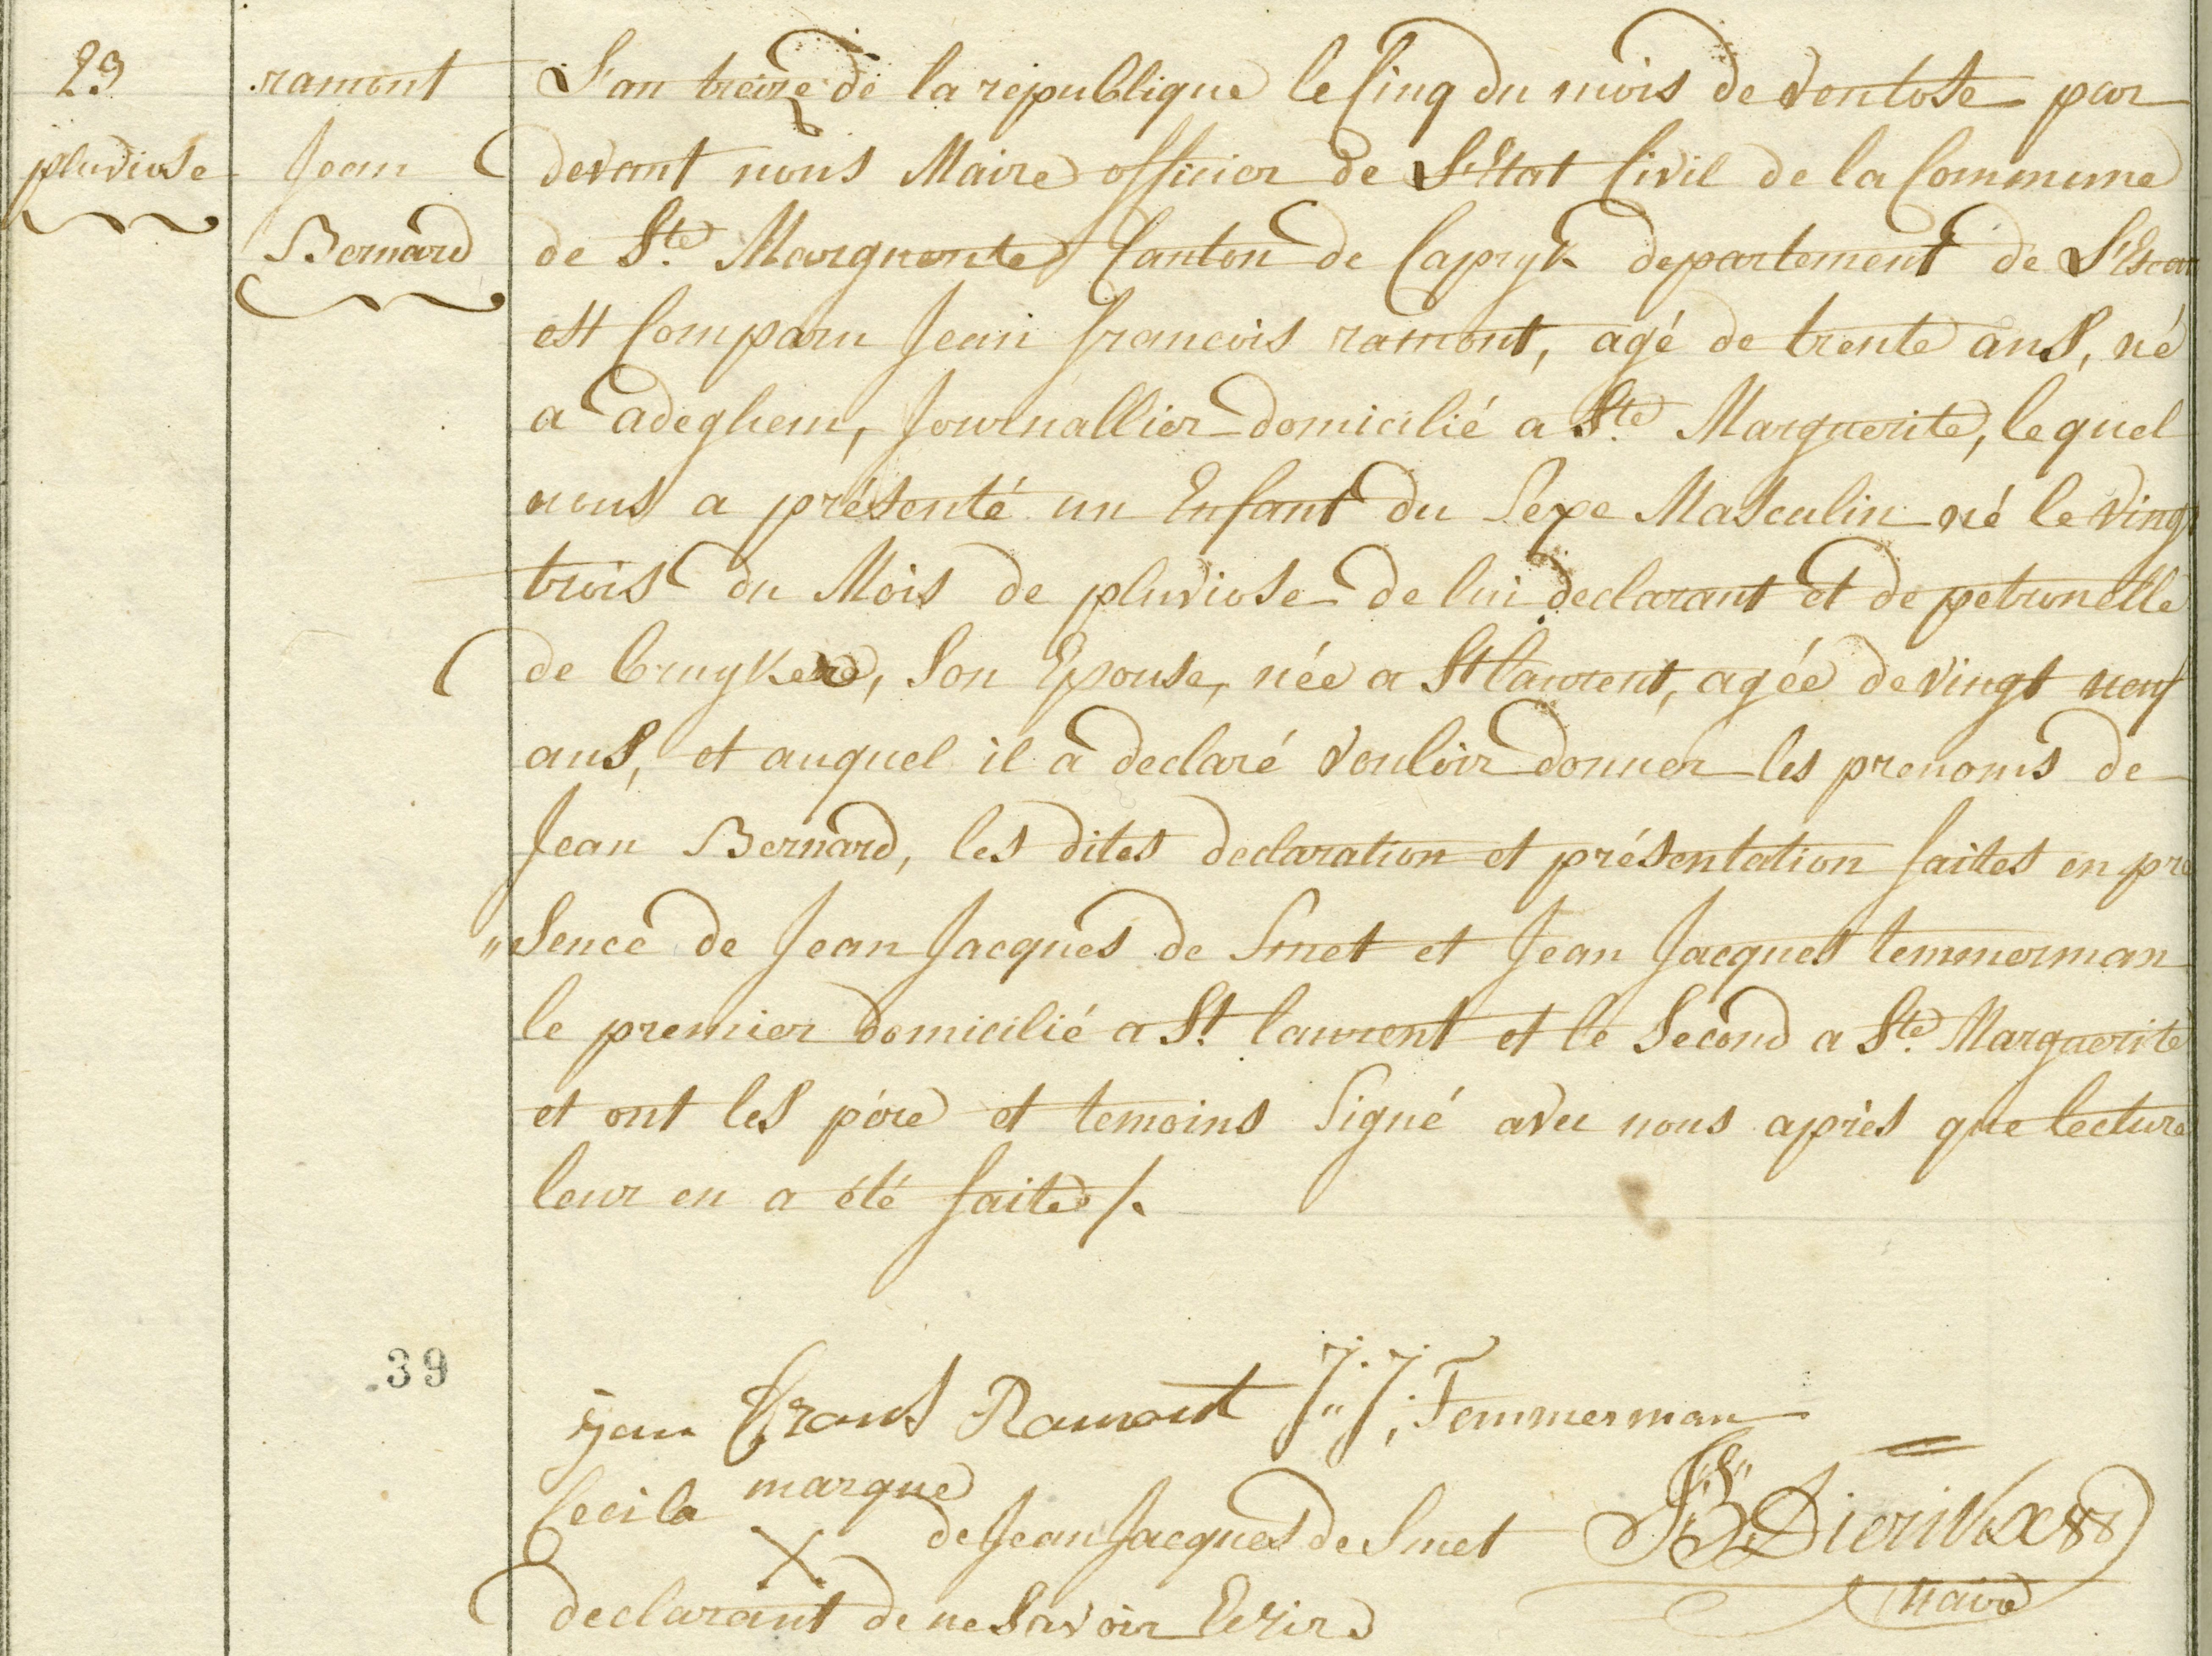 23
pluviose
ramont
Jean
Bernard
L'an treize de la republique le Cinq du mois de Ventose par
devant nous Maire officier de L'Etat Civil de la Commune
de Ste Marguerite Canton de Capryk departement de L'Escau
est Comparu Jean francois ramont, agé de trente ans, né
a adeghem, Journallier domicilié a Ste Marguerite, lequel
nous a présenté un Enfant du Sexe Masculin né le Vingt
trois du Mois de pluviose de lui declarant et de petronelle
de Cruykere, Son Epouse, née a St laurent, agée de Vingt neuf
ans, et auquel il a declaré Vouloir donner les prenoms de
Jean Bernard, les dites declaration et présentation faites en pre
" Sence de Jean Jacques de Smet et Jean Jacques temmerman
le premier domicilié a St laurent et le Second a Ste Marguerite
et ont les pére et temoins Signé avec nous après que lecture
leur en a été faite /.
39
jan frans Ramont J: J: Temmerman
Ceci la marque
X de Jean Jacques de Smet
declarant de ne Savoir Ecrire
JB Dierickx
Maire